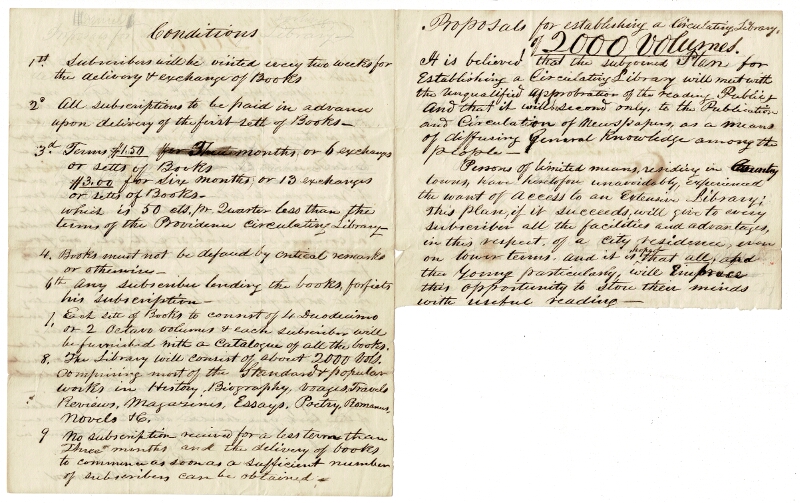 Conditions
1st Subscribers will be visited every two weeks for
the delivery & exchange of Books
2d All subscriptions to be paid in advance
upon delivery of the first sett of Books—
3d Terms $1.50 for Three months, or 6 exchanges
or setts of Books
$3.00 for Six months, or 13 exchanges
or setts of Books—
which is 50 cts. pr Quarter less than the
terms of the Providence circulating Library—
4. Books must not be defaced by critical remarks
or otherwise—
6th Any subscriber lending the books, forfeits
his subscription—
7, Each sett of Books to consist of 4 Duodecimo
or 2 Octavo volumes & each subscriber will
be furnished with a Catalogue of all the books.
8. The Library will consist of about 2000 Vols.
comprising most of the Standard & popular
works in History, Biography, Voages, Travels
Reviews, Magazines, Essays, Poetry, Romances,
Novels &C.
9 No subscription received for a less term than
Three months and the delivery of books
to commence as soon as a sufficient number
of subscribers can be obtained.
Proposals for establishing a Circulating Library,
of 2000 Volumes.
It is believed that the subjoined Plan for
Establishing a Circulating Library will meet with
the unqualified approbation of the reading Public;
And that it will second only, to the Publication
and Circulation of Newspapers, as a means
of diffusing General Knowledge among the
people—
Persons of limited means, residing in Country
towns, have heretofore unavoidably, experienced
the want of access to an Extensive Library;
this plan, if it succeeds, will give to every
subscriber all the facilities and advantages,
in this respect, of a city residence, even
on lower terms. and it is hoped that all, and
the Young particularly, will Embrace
this opportunity to store their minds
with useful reading—